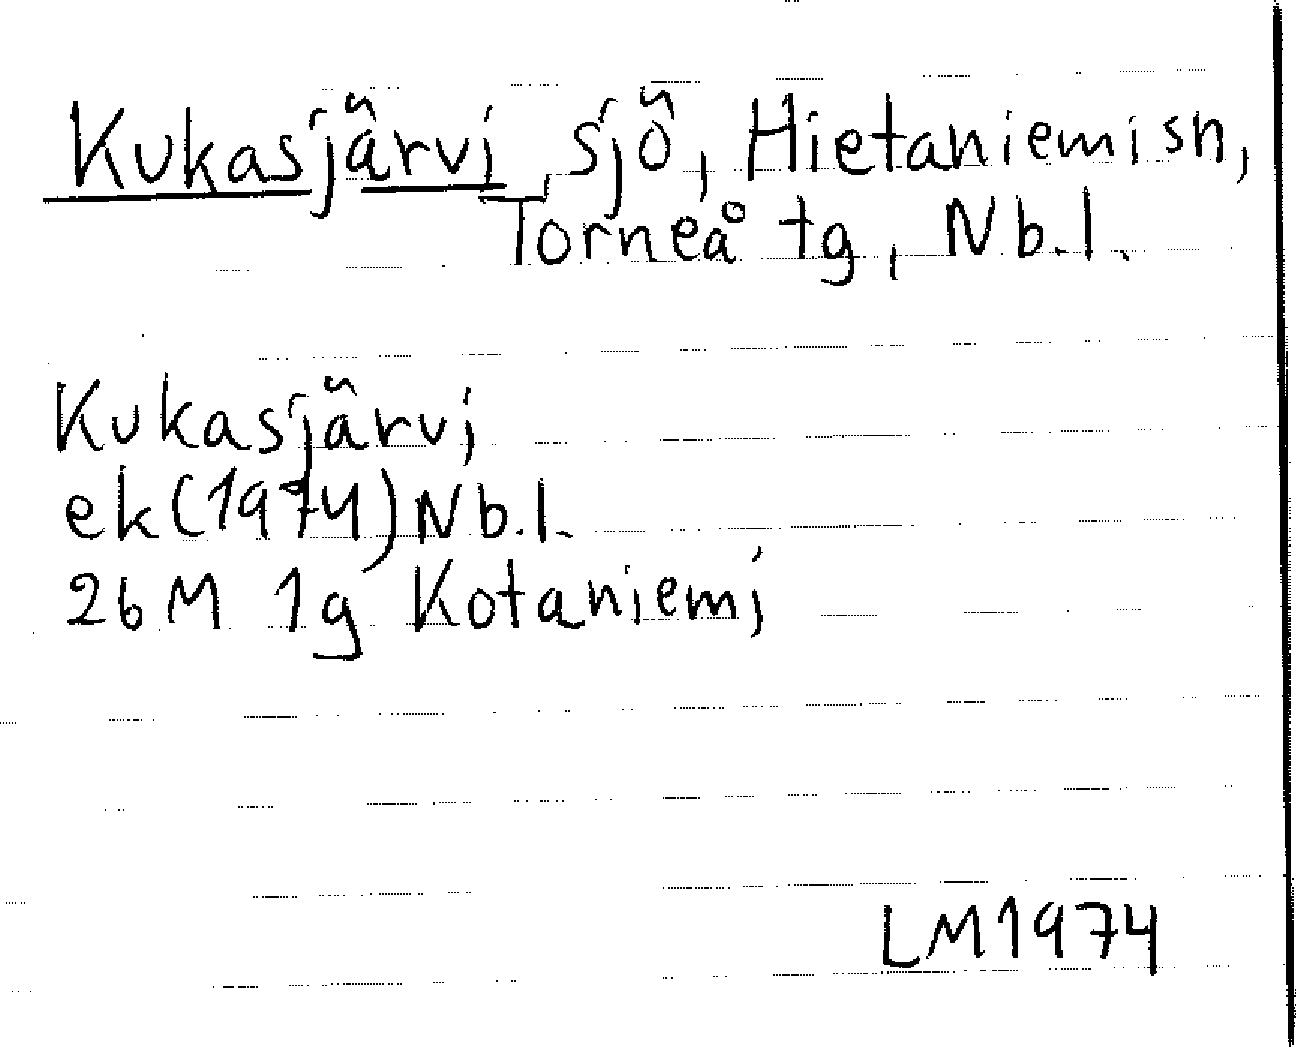 Kukasjärvi, sjö, Hietaniemi sn,
Torneå tg, Nb.l.
Kukasjärvi
ek (1974) Nb.l.
26 M 1g Kotaniemi
LM 1974